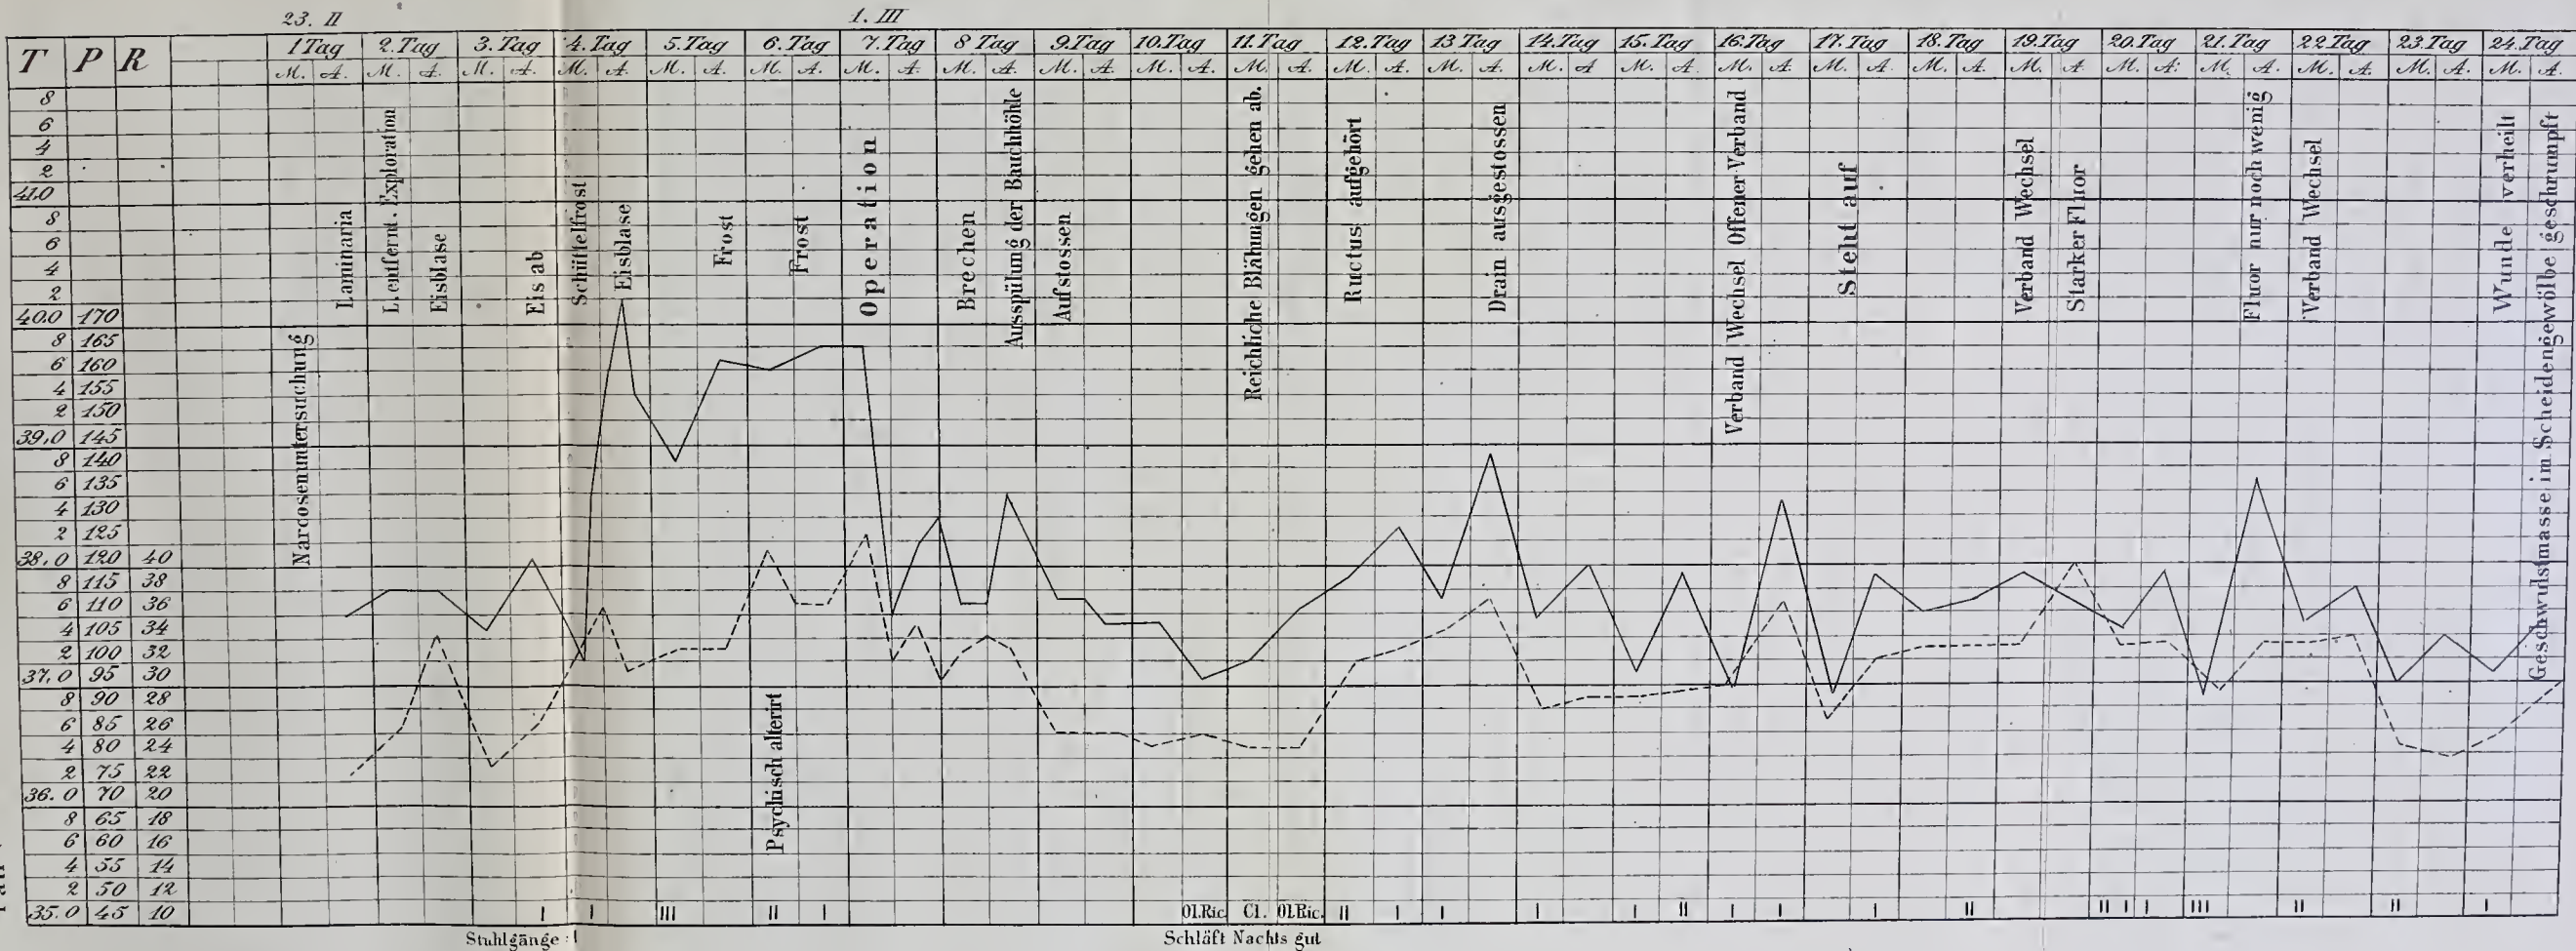 23. II 1. III
T P R 1 Tag 2. Tag 3. Tag 4. Tag 5. Tag 6. Tag 7. Tag 8 Tag 9. Tag 10. Tag 11. Tag 12. Tag 13 Tag 14. Tag 15. Tag 16. Tag 17. Tag 18. Tag 19. Tag 20. Tag 21. Tag 22. Tag 23. Tag 24. Tag
M. A. M. A. M. A. M. A. M. A. M. A. M. A. M. A. M. A. M. A. M. A. M. A. M. A. M. A M. A. M. A. M. A. M. A. M. A M. A. M. A. M. A. M. A. M. A.
8
6
4
2
41.0
8
6
4
2
40.0 170
8 165
6 160
4 155
2 150
39,0 145
8 140
6 135
4 130
2 125
38.0 120 40
8 115 38
6 110 36
4 105 34
2 100 32
37.0 95 30
8 90 28
6 85 26
4 80 24
2 75 22
36.0 70 20
8 65 18
6 60 16
4 55 14
2 50 12
35.0 45 10
Narcosenuntersuchung
Laminaria
L. entfernt. Exploration
Eisblase
Eis ab
Schüttelfrost
Eisblase
Frost
Frost
Psychisch alterirt
Operation
Brechen
Ausspülung der Bauchhöhle
Aufstossen
Reichliche Blähungen gehen ab.
Ructus aufgehört
Drain ausgestossen
Verband Wechsel Offener Verband
Steht auf
Verband Wechsel
Starker Fluor
Fluor nur noch wenig
Verband Wechsel
Wunde verheilt
Geschwulstmasse im Scheidengewölbe geschrumpft
I I III II I Ol.Ric. Cl. Ol.Ric. II I I I I II I I I II II I I III II II I
Stuhlgänge: I Schläft Nachts gut